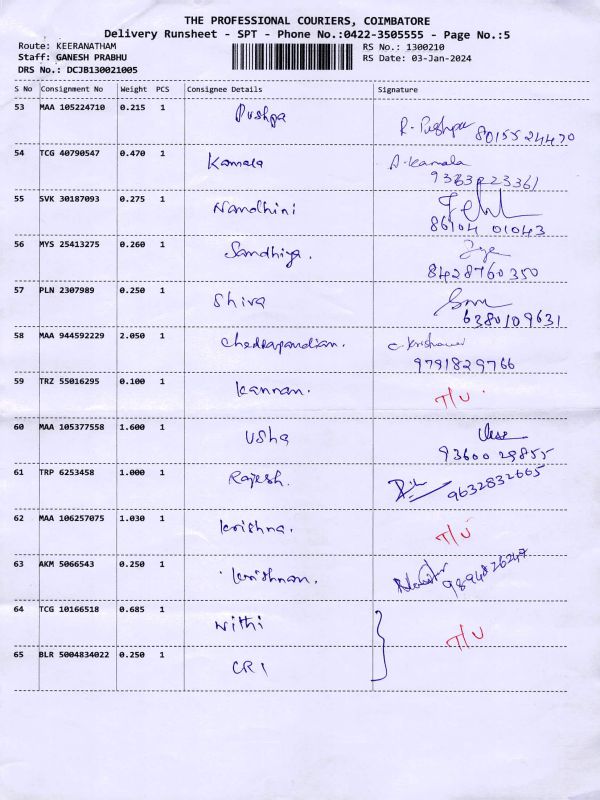 THE PROFESSIONAL COURIERS, COIMBATORE
Delivery Runsheet - SPT - Phone No.:0422-3505555 - Page No.:5
Route: KEERANATHAM RS No.: 1300210
Staff: GANESH PRABHU RS Date: 03-Jan-2024
DRS No.: DCJB130021005
S No Consignment No Weight PCS Consignee Details Signature
53 MAA 105224710 0.215 1 Pushpa R. Pushpa 8015524470
54 TCG 40790547 0.470 1 Kamala A. Kamala
9363223361
55 SVK 30187093 0.275 1 Nandhini
86104 01043
56 MYS 25413275 0.260 1 Sandhiya.
8428760350
57 PLN 2307989 0.250 1 Shiva
6380109631
58 MAA 944592229 2.050 1 C.
9791829766
59 TRZ 55016295 0.100 1 Kannan. T/U
60 MAA 105377558 1.600 1 Usha
93600 29855
61 TRP 6253458 1.000 1 Rajesh. 9632832665
62 MAA 106257075 1.030 1 Krishna. T/U
63 AKM 5066543 0.250 1 Krishnan. 9894826247
64 TCG 10166518 0.685 1 Nithi T/U
65 BLR 5004834022 0.250 1 CRI